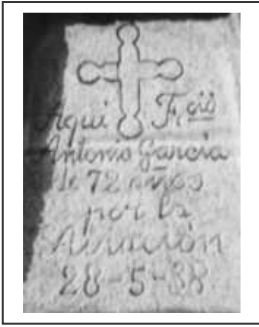 Aquí Fció
Antonio García
de 72 años
por la
Aviación
28-5-38